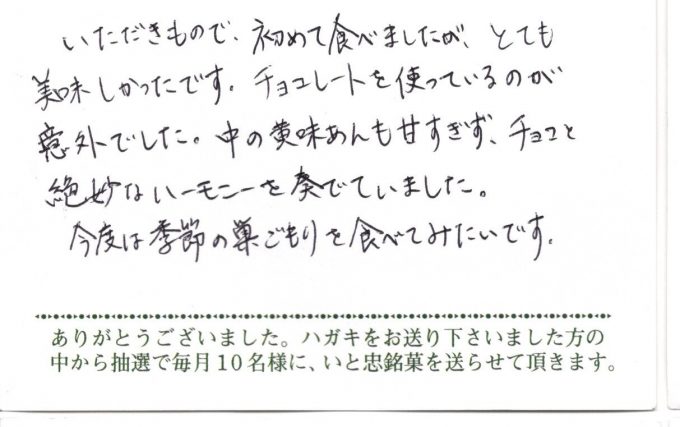 いただきもので、初めて食べましたが、とても
美味しかったです。チョコレートを使っているのが
意外でした。中の黄味あんも甘すぎず、チョコと
絶妙なハーモニーを奏でていました。
今度は季節の巣ごもりを食べてみたいです。
ありがとうございました。ハガキをお送り下さいました方の
中から抽選で毎月10名様に、いと忠銘菓を送らせて頂きます。